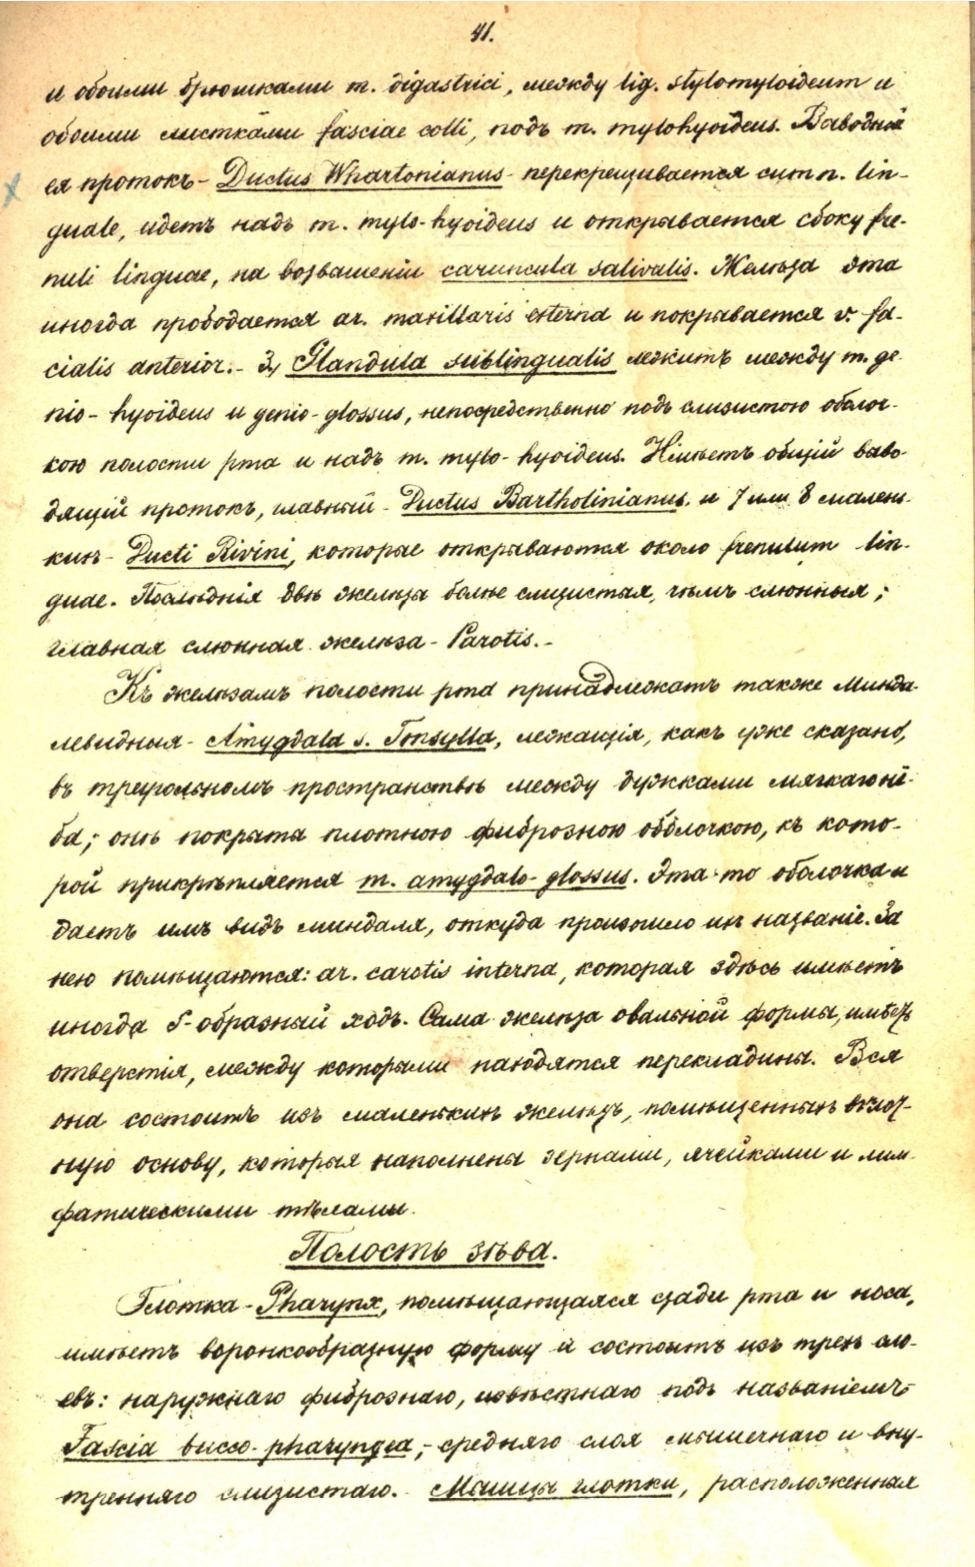 41.
и обоими брюшками m. digastrici, между lig. stylomyloideum и
обоими листками fasciae colli, подъ m. mylohyoideus. Выводной
ея протокъ - Ductus Whartonianus - перекрещивается съ n. lin-
guale, идетъ надъ m. mylo-hyoideus и открывается сбоку fre-
nuli linguae, на возвышеніи caruncula salivalis. Желѣза эта
иногда прободается ar. maxillaris externa и покрывается v. fa-
cialis anterior. - 3, Glandula sublingualis лежитъ между m. ge-
nio-hyoideus и genio-glossus, непосредственно подъ слизистою оболоч-
кою полости рта и надъ m. mylo-hyoideus. Имѣетъ общій выво-
дящій протокъ, главный - Ductus Bartholinianus. и 7 или 8 малень-
кихъ - Ducti Rivini, которые открываются около frenulum lin-
guae. Послѣднія двѣ желѣзы болѣе слизистыя, чѣмъ слюнныя;
главная слюнная желѣза - Parotis. -
Къ желѣзамъ полости рта принадлежатъ также Минда-
левидныя - Amygdala s. Tonsylla, лежащія, какъ уже сказано,
въ треугольномъ пространствѣ между дужками мягкаго нё-
ба; онѣ покрыты плотною фиброзною оболочкою, къ кото-
рой прикрѣпляется m. amygdalo-glossus. Эта-то оболочка и
даетъ имъ видъ миндаля, откуда произошло ихъ названіе. За
нею помѣщаются: ar. carotis interna, которая здѣсь имѣетъ
иногда S-образный ходъ. Сама желѣза овальной формы, имѣетъ
отверстія, между которыми находятся перекладины. Вся
она состоитъ изъ маленькихъ желѣзъ, помѣщенныхъ въ
ную основу, которыя наполнены зернами, ячейками и лим-
фатическими тѣлами.
Полость зѣва.
Глотка - Pharynx, помѣщающаяся сзади рта и носа,
имѣетъ воронкообразную форму и состоитъ изъ трехъ сло-
евъ: наружнаго фибрознаго, извѣстнаго подъ названіемъ
Fascia bucco-pharyngea, - средняго слоя мышечнаго и вну-
тренняго слизистаго. - Мышцы глотки, расположенныя